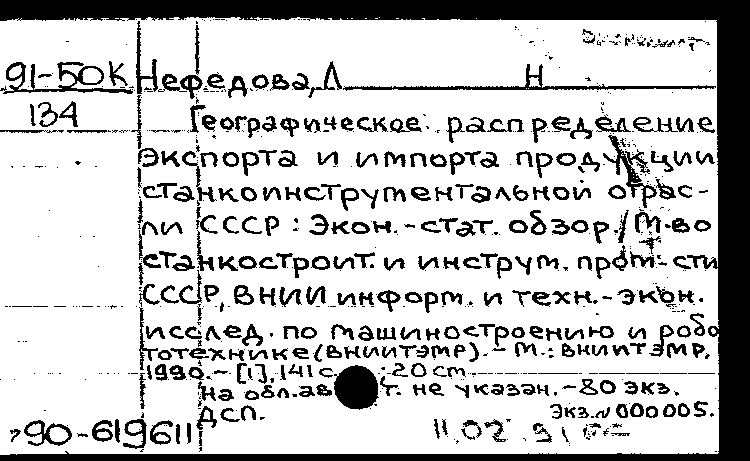 91-50К Нефедова, Л Н
134 Географическое распределение
экспорта и импорта продукции
станкоинструментальной отрас-
ли СССР : Экон.-стат. обзор / М-во
станкостроит. и инструм. пром-сти
СССР, ВНИИ информ. и техн.-экон.
исслед. по машиностроению и робо
тотехнике (ВНИИТЭМР). - М. : ВНИИТЭМР,
1990. - [1], 141 с. ; 20 cm
На обл. ав т. не указан. - 80 экз.
ДСП. Экз. № 000005.
90-619611 11.02.91